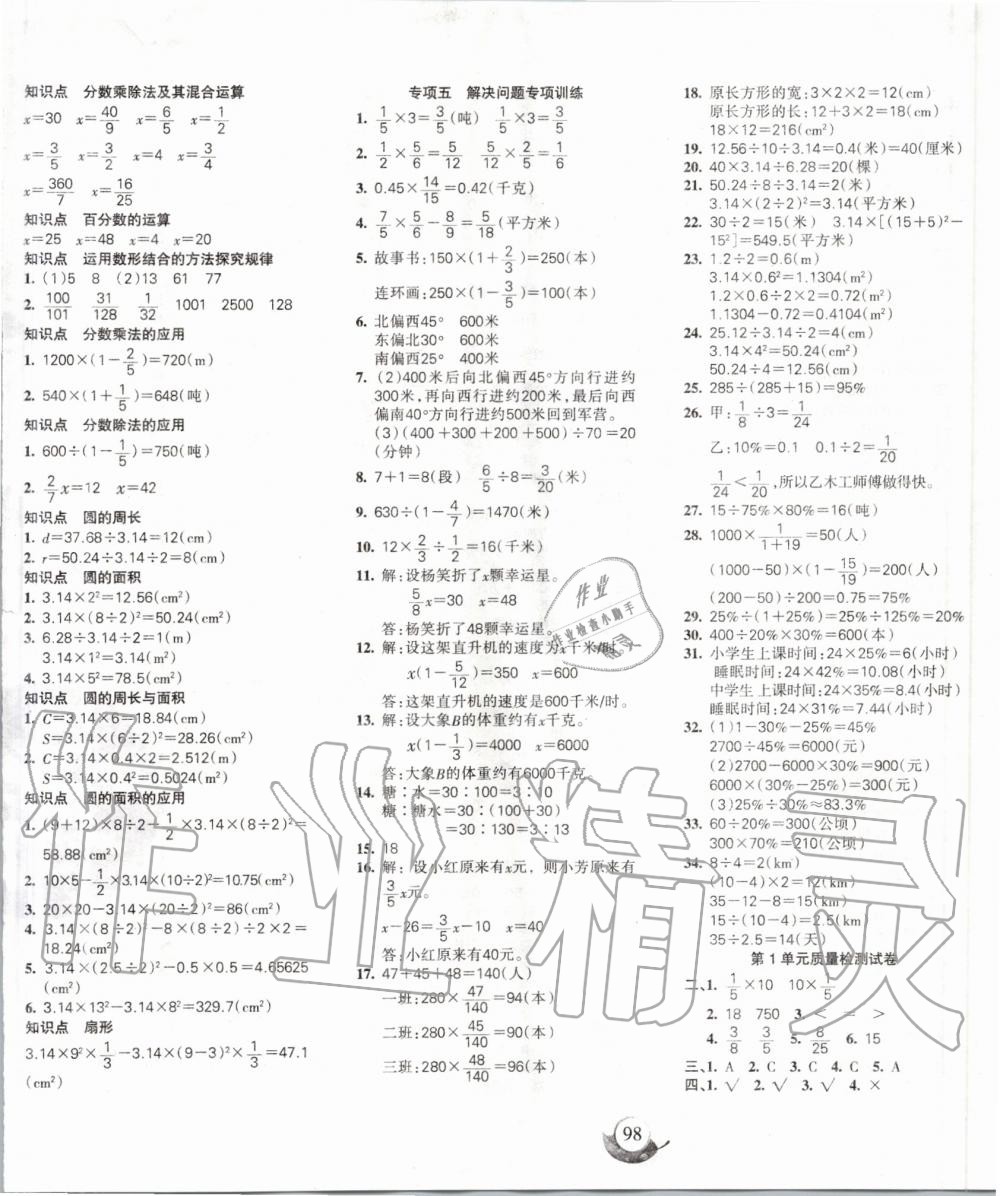 知识点 分数乘除法及其混合运算
x=30 x=40/9 x=6/5 x=1/2
x=3/5 x=3/2 x=4 x=3/4
x=360/7 x=16/25
知识点 百分数的运算
x=25 x=48 x=4 x=20
知识点 运用数形结合的方法探究规律
1. (1)5 8 (2)13 61 77
2. 100/101 31/128 1/32 1001 2500 128
知识点 分数乘法的应用
1. 1200×(1-2/5)=720(m)
2. 540×(1+1/5)=648(吨)
知识点 分数除法的应用
1. 600÷(1-1/5)=750(吨)
2. 2/7x=12 x=42
知识点 圆的周长
1. d=37.68÷3.14=12(cm)
2. r=50.24÷3.14÷2=8(cm)
知识点 圆的面积
1. 3.14×2²=12.56(cm²)
2. 3.14×(8÷2)²=50.24(cm²)
3. 6.28÷3.14÷2=1(cm)
3.14×1²=3.14(cm²)
4. 3.14×5²=78.5(cm²)
知识点 圆的周长与面积
1. C=3.14×6=18.84(cm)
S=3.14×(6÷2)²=28.26(cm²)
2. C=3.14×0.4×2=2.512(m)
S=3.14×0.4²=0.5024(m²)
知识点 圆的面积的应用
1. (9+12)×8÷2-1/2×3.14×(8÷2)²=
58.88(cm²)
2. 10×5-1/2×3.14×(10÷2)²=10.75(cm²)
3. 20×20-3.14×(20÷2)²=86(cm²)
4. 3.14×(8÷2)²-8×(8÷2)÷2×2=
18.24(cm²)
5. 3.14×(2.5÷2)²-0.5×0.5=4.65625
(cm²)
6. 3.14×13²-3.14×8²=329.7(cm²)
知识点 扇形
3.14×9²×1/3-3.14×(9-3)²×1/3=47.1
(cm²)
专项五 解决问题专项训练
1. 1/5×3=3/5(吨) 1/5×3=3/5
2. 1/2×5/6=5/12 5/12×2/5=1/6
3. 0.45×14/15=0.42(千克)
4. 7/5×5/6-8/9=5/18(平方米)
5. 故事书:150×(1+2/3)=250(本)
连环画:250×(1-3/5)=100(本)
6. 北偏西45° 600米
东偏北30° 600米
南偏西25° 400米
7. (2)400米后向北偏西45°方向行进约
300米,再向西行进约200米,最后向西
偏南40°方向行进约500米回到军营。
(3)(400+300+200+500)÷70=20
(分钟)
8. 7+1=8(段) 6/5÷8=3/20(米)
9. 630÷(1-4/7)=1470(米)
10. 12×2/3÷1/2=16(千米)
11. 解:设杨笑折了x颗幸运星。
5/8x=30 x=48
答:杨笑折了48颗幸运星。
12. 解:设这架直升机的速度为x千米/时。
x(1-5/12)=350 x=600
答:这架直升机的速度是600千米/时。
13. 解:设大象B的体重约有x千克。
x(1-1/3)=4000 x=6000
答:大象B的体重约有6000千克。
14. 糖:水=30:100=3:10
糖:糖水=30:(100+30)
=30:130=3:13
15. 18
16. 解:设小红原来有x元,则小芳原来有
3/5x元。
x-26=3/5x-10 x=40
答:小红原来有40元。
17. 47+45+48=140(人)
一班:280×47/140=94(本)
二班:280×45/140=90(本)
三班:280×48/140=96(本)
18. 原长方形的宽:3×2×2=12(cm)
原长方形的长:12+3×2=18(cm)
18×12=216(cm²)
19. 12.56÷10÷3.14=0.4(米)=40(厘米)
20. 40×3.14÷6.28=20(棵)
21. 50.24÷8÷3.14=2(米)
3.14×(2÷2)²=3.14(平方米)
22. 30÷2=15(米) 3.14×[(15+5)²-
15²]=549.5(平方米)
23. 1.2÷2=0.6(m)
3.14×0.6²=1.1304(m²)
1.2×0.6÷2×2=0.72(m²)
1.1304-0.72=0.4104(m²)
24. 25.12÷3.14÷2=4(cm)
3.14×4²=50.24(cm)
50.24÷4=12.56(cm)
25. 285÷(285+15)=95%
26. 甲:1/8÷3=1/24
乙:10%=0.1 0.1÷2=1/20
1/24<1/20,所以乙木工师傅做得快。
27. 15÷75%×80%=16(吨)
28. 1000×1/(1+19)=50(人)
(1000-50)×(1-15/19)=200(人)
(200-50)÷200=0.75=75%
29. 25%÷(1+25%)=25%÷125%=20%
30. 400×(1-20%)÷30%=600(本)
31. 小学生上课时间:24×25%=6(小时)
睡眠时间:24×42%=10.08(小时)
中学生上课时间:24×35%=8.4(小时)
睡眠时间:24×31%=7.44(小时)
32. (1)1-30%-25%=45%
2700÷45%=6000(元)
(2)2700-6000×30%=900(元)
6000×(30%-25%)=300(元)
(3)25%÷30%≈83.3%
33. 60÷20%=300(公顷)
300×70%=210(公顷)
34. 8÷4=2(km)
(10-4)×2=12(km)
35-12-8=15(km)
15÷(10-4)=2.5(km)
35÷2.5=14(天)
第1单元质量检测试卷
二、1. 1/5×10 10×1/5
2. 18 750 3. < = >
4. 3/8 3/8 5. 8/25 6. 15
三、1. A 2. C 3. C 4. C 5. A
四、1. √ 2. √ 3. √ 4. ×
98
作业
作业检查小助手
精灵
作业精灵